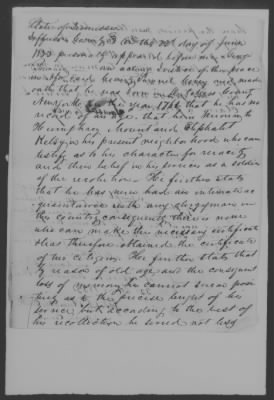 State of Tennessee
Jefferson County On this day of June
1833 personally appeared before me
an acting Justice of the peace
in & for said county and made
oath that he was born in Dutchess County
New York in the year 1761 that he has no
record of his age, that he is known to
Humphrey Mount and Eliphalet
Kelsey in his present neighborhood who can
testify as to his character for veracity
and their belief in his services as a soldier
of the revolution. He further states
that he has never had an intimate ac
quaintance with any clergyman in
this country consequently there is none
who can make the necessary certificate
& has therefore obtained the certificate
of two citizens. He further states that
by reason of old age and the consequent
loss of memory he cannot swear posi
tively as to the precise length of his
service but according to the best of
his recollection he served not less